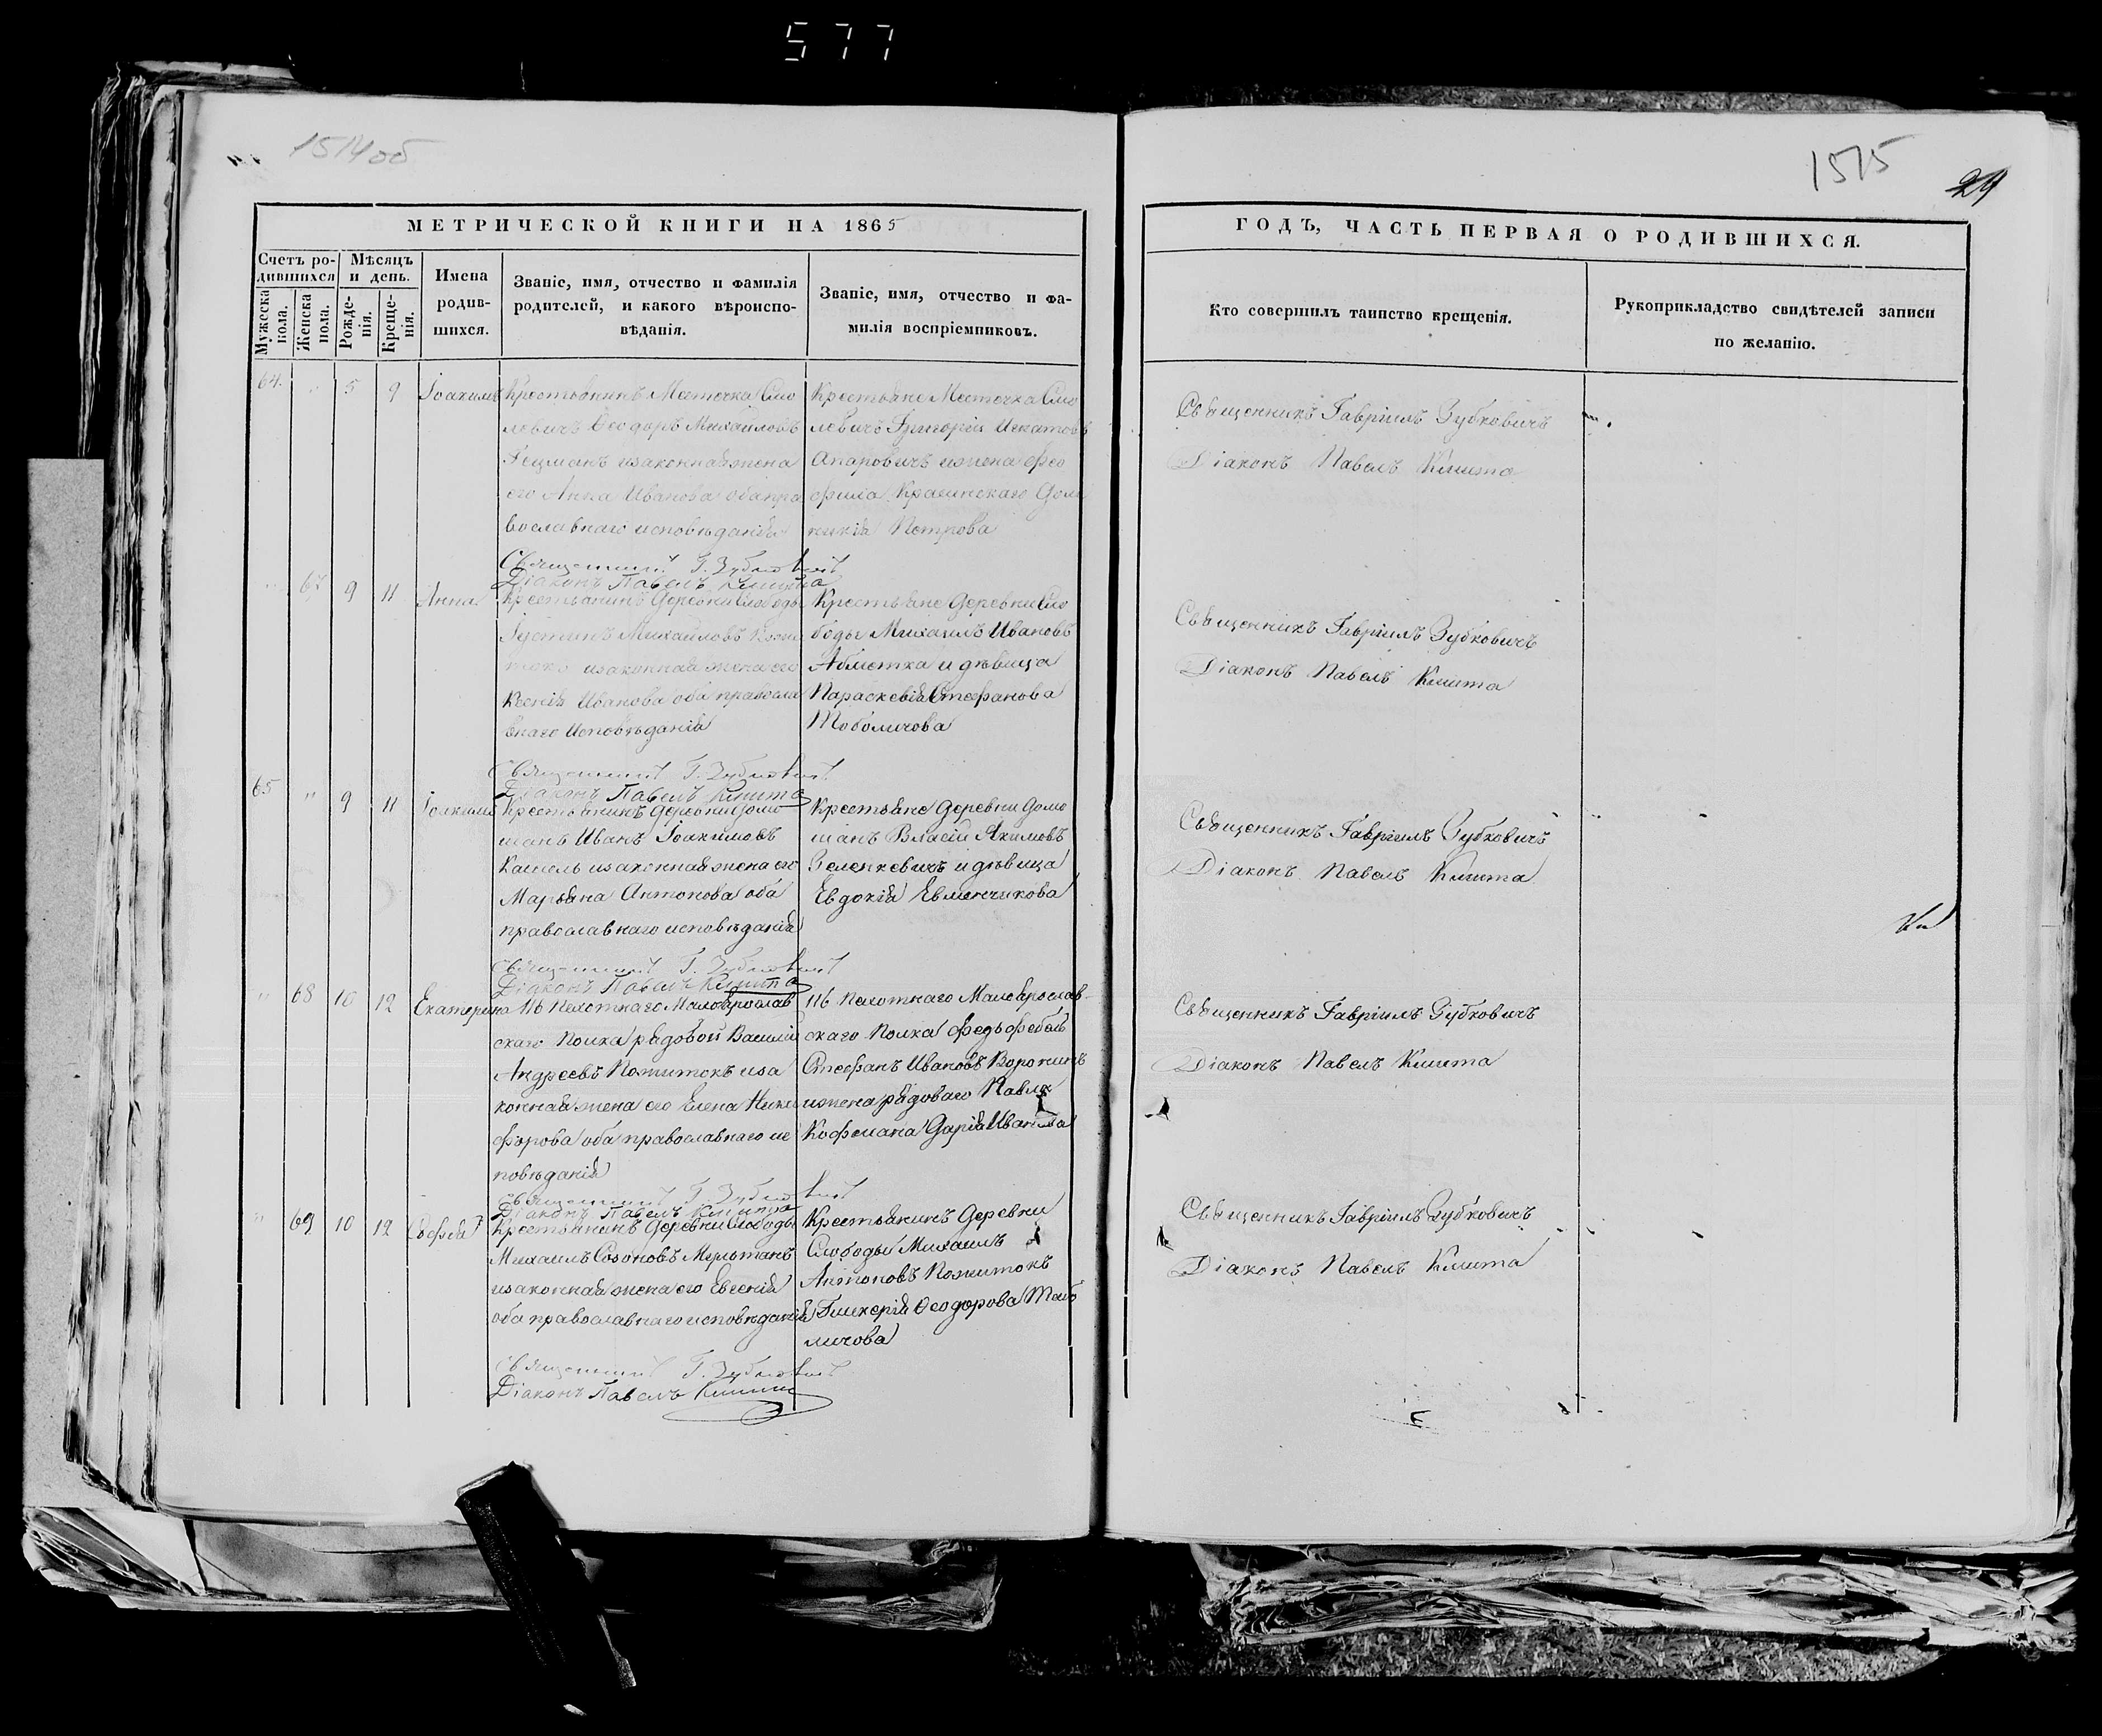 577
1514об
1515
29
МЕТРИЧЕСКОЙ КНИГИ НА 1865
ГОДЪ, ЧАСТЬ ПЕРВАЯ О РОДИВШИХСЯ.
Счетъ ро-
дившихся
Мужеска
пола.
Женска
пола.
Мѣсяцъ
и день.
Рожде-
нія.
Креще-
нія.
Имена
родив-
шихся.
Званіе, имя, отчество и фамилія
родителей, и какого вѣроиспо-
вѣданія.
Званіе, имя, отчество и фа-
милія воспріемниковъ.
Кто совершилъ таинство крещенія.
Рукоприкладство свидѣтелей записи
по желанію.
64. " 5 9 Іоакимъ
Крестьянинъ Местечка Смо
левичъ Ѳеодоръ Михайловъ
Гецманъ изаконнаяжена
его Анна Иванова обапра
вославнаго исповѣданія
Священникъ Г. Зубковичъ
Діаконъ Павелъ Кмита
Крестьяне Местечка Смо
левичъ Григорій Игнатовъ
ижена
Петрова
Священникъ Гавріилъ Зубковичъ
Діаконъ Павелъ Кмита
" 67 9 11 Анна
Крестьянинъ Деревни Слободы
Іустинъ Михайловъ
изаконная жена его
Ксенія Иванова оба правосла
внаго Исповѣданія
Священникъ Г. Зубковичъ
Діаконъ Павелъ Кмита
Крестьяне Деревни Сло
боды Михаилъ Ивановъ
и дѣвица
Параскевія Стефанова
Тоболичова
Священникъ Гавріилъ Зубковичъ
Діаконъ Павелъ Кмита
65 " 9 11 Іоакимъ
Крестьянинъ Деревни Домо
шанъ Иванъ Іоакимовъ
Кашель изаконнаяжена его
Марьяна Антонова оба
православнаго исповѣданія
Священникъ Г. Зубковичъ
Діаконъ Павелъ Кмита
Крестьяне Деревни Домо
шанъ Власій Якимовъ
Зеленкевичъ и дѣвица
Евдокія Евменчикова
Священникъ Гавріилъ Зубковичъ
Діаконъ Павелъ Кмита
" 68 10 12 Екатерина
116 Пехотнаго Малоярослав
скаго Полка рядовой Василій
Андреевъ Пожитокъ иза
конная жена его Елена Ники
форова оба православнаго ис
повѣданія
Священникъ Г. Зубковичъ
Діаконъ Павелъ Кмита
116 Пехотнаго Малоярослав-
скаго Полка Федьфебель
Стефанъ Ивановъ Воронинъ
ижена рядоваго Павла
Кофмана Дарія Иванова
Священникъ Гавріилъ Зубковичъ
Діаконъ Павелъ Кмита
" 69 10 12 Софія
Крестьянинъ Деревни Слободы
Михаилъ Созоновъ
изаконная жена его Евгенія
оба православнаго исповѣданія
Священникъ Г. Зубковичъ
Діаконъ Павелъ Кмита
Крестьянинъ Деревни
Слободы Михаилъ
Антоновъ Пожитокъ
Гликерія Ѳеодорова Табо
личова
Священникъ Гавріилъ Зубковичъ
Діаконъ Павелъ Кмита